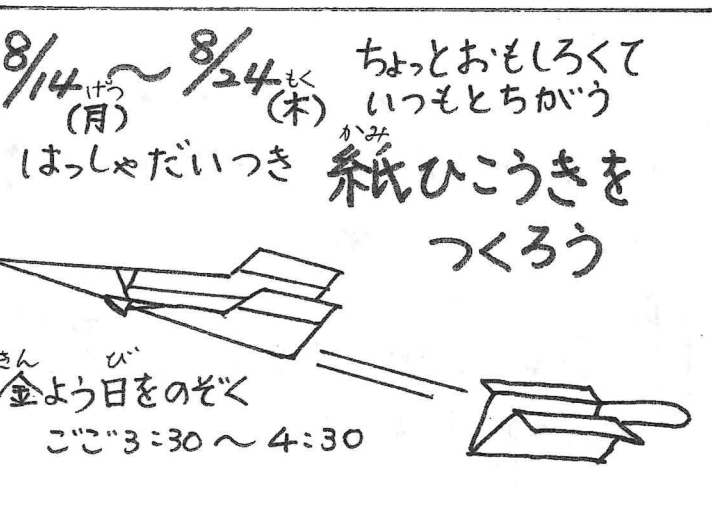 8/14〜8/24
げつ もく
(月) (木)
ちょっとおもしろくて
いつもとちがう
はっしゃだいつき
かみ
紙ひこうきを
つくろう
きん び
金よう日をのぞく
ごご3:30〜4:30